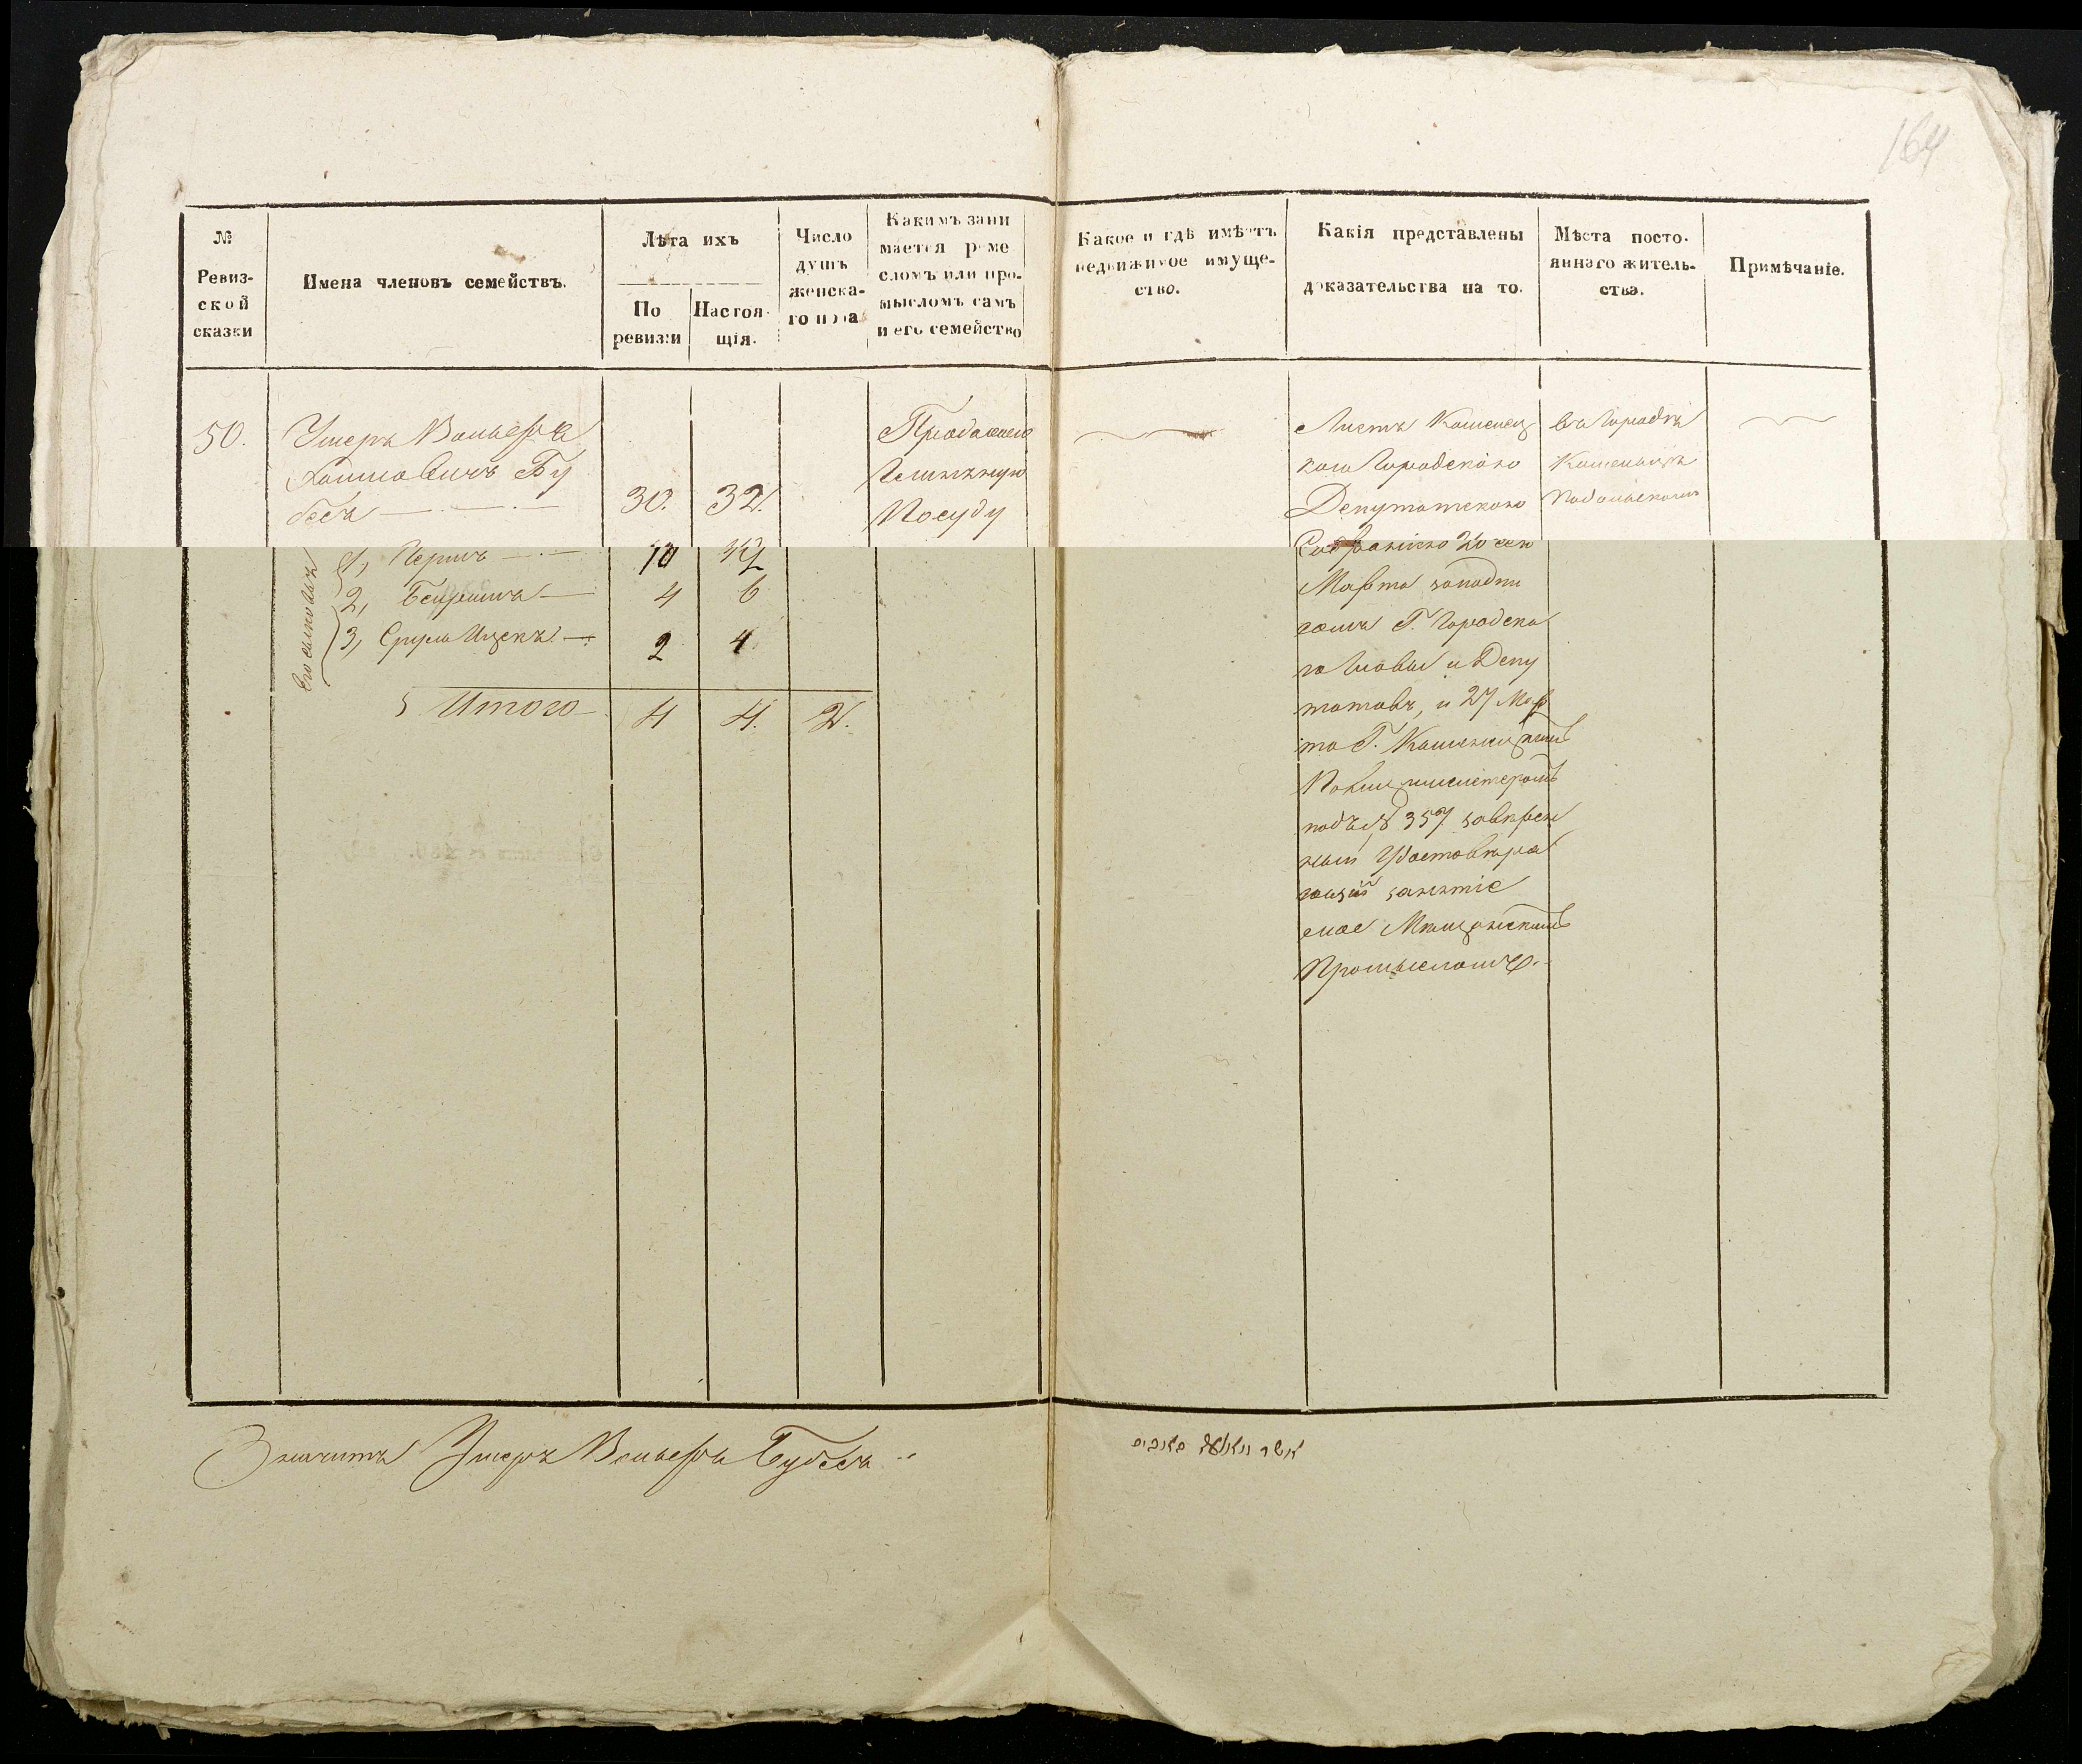 164
№
Ревиз-
ской
сказки
Имена членовъ семействъ.
Лѣта ихъ
По
ревизіи
Настоя-
щія.
Число
душъ
женска-
го пола
Какимъ зани
мается реме
сломъ или про-
мысломъ самъ
и его семейство
Какое и гдѣ имѣетъ
недвижимое имуще-
ство.
Какія представлены
доказательства на то.
Мѣста посто-
яннаго житель-
ства.
Примѣчаніе.
50.
Ушеръ Вольфъ
Бу
бесъ
30.
32.
Продажею
Глиняную
Посуду
Листъ Каменец
каго Городскаго
Депутатского
Собранiя 20 сего
Марта заподпи
сомъ Г. Городска
го Главы и Депу
татовъ, и 27 Мар
та Г. Каменецкимъ
Полицiймистеромъ
подъ № 357 завѣрен
ный Удостовѣря
ющiй занятіе
его Мѣщанскимъ
Промысломъ.
въ Городѣ
Каменецѣ
Подольскомъ
Его сыновья
1, Перецъ
10
12
2,
4
6
3, Сруль Ицекъ
2
4
Итого
4
4.
2.
Значитъ Ушеръ Вольфъ Бубесъ